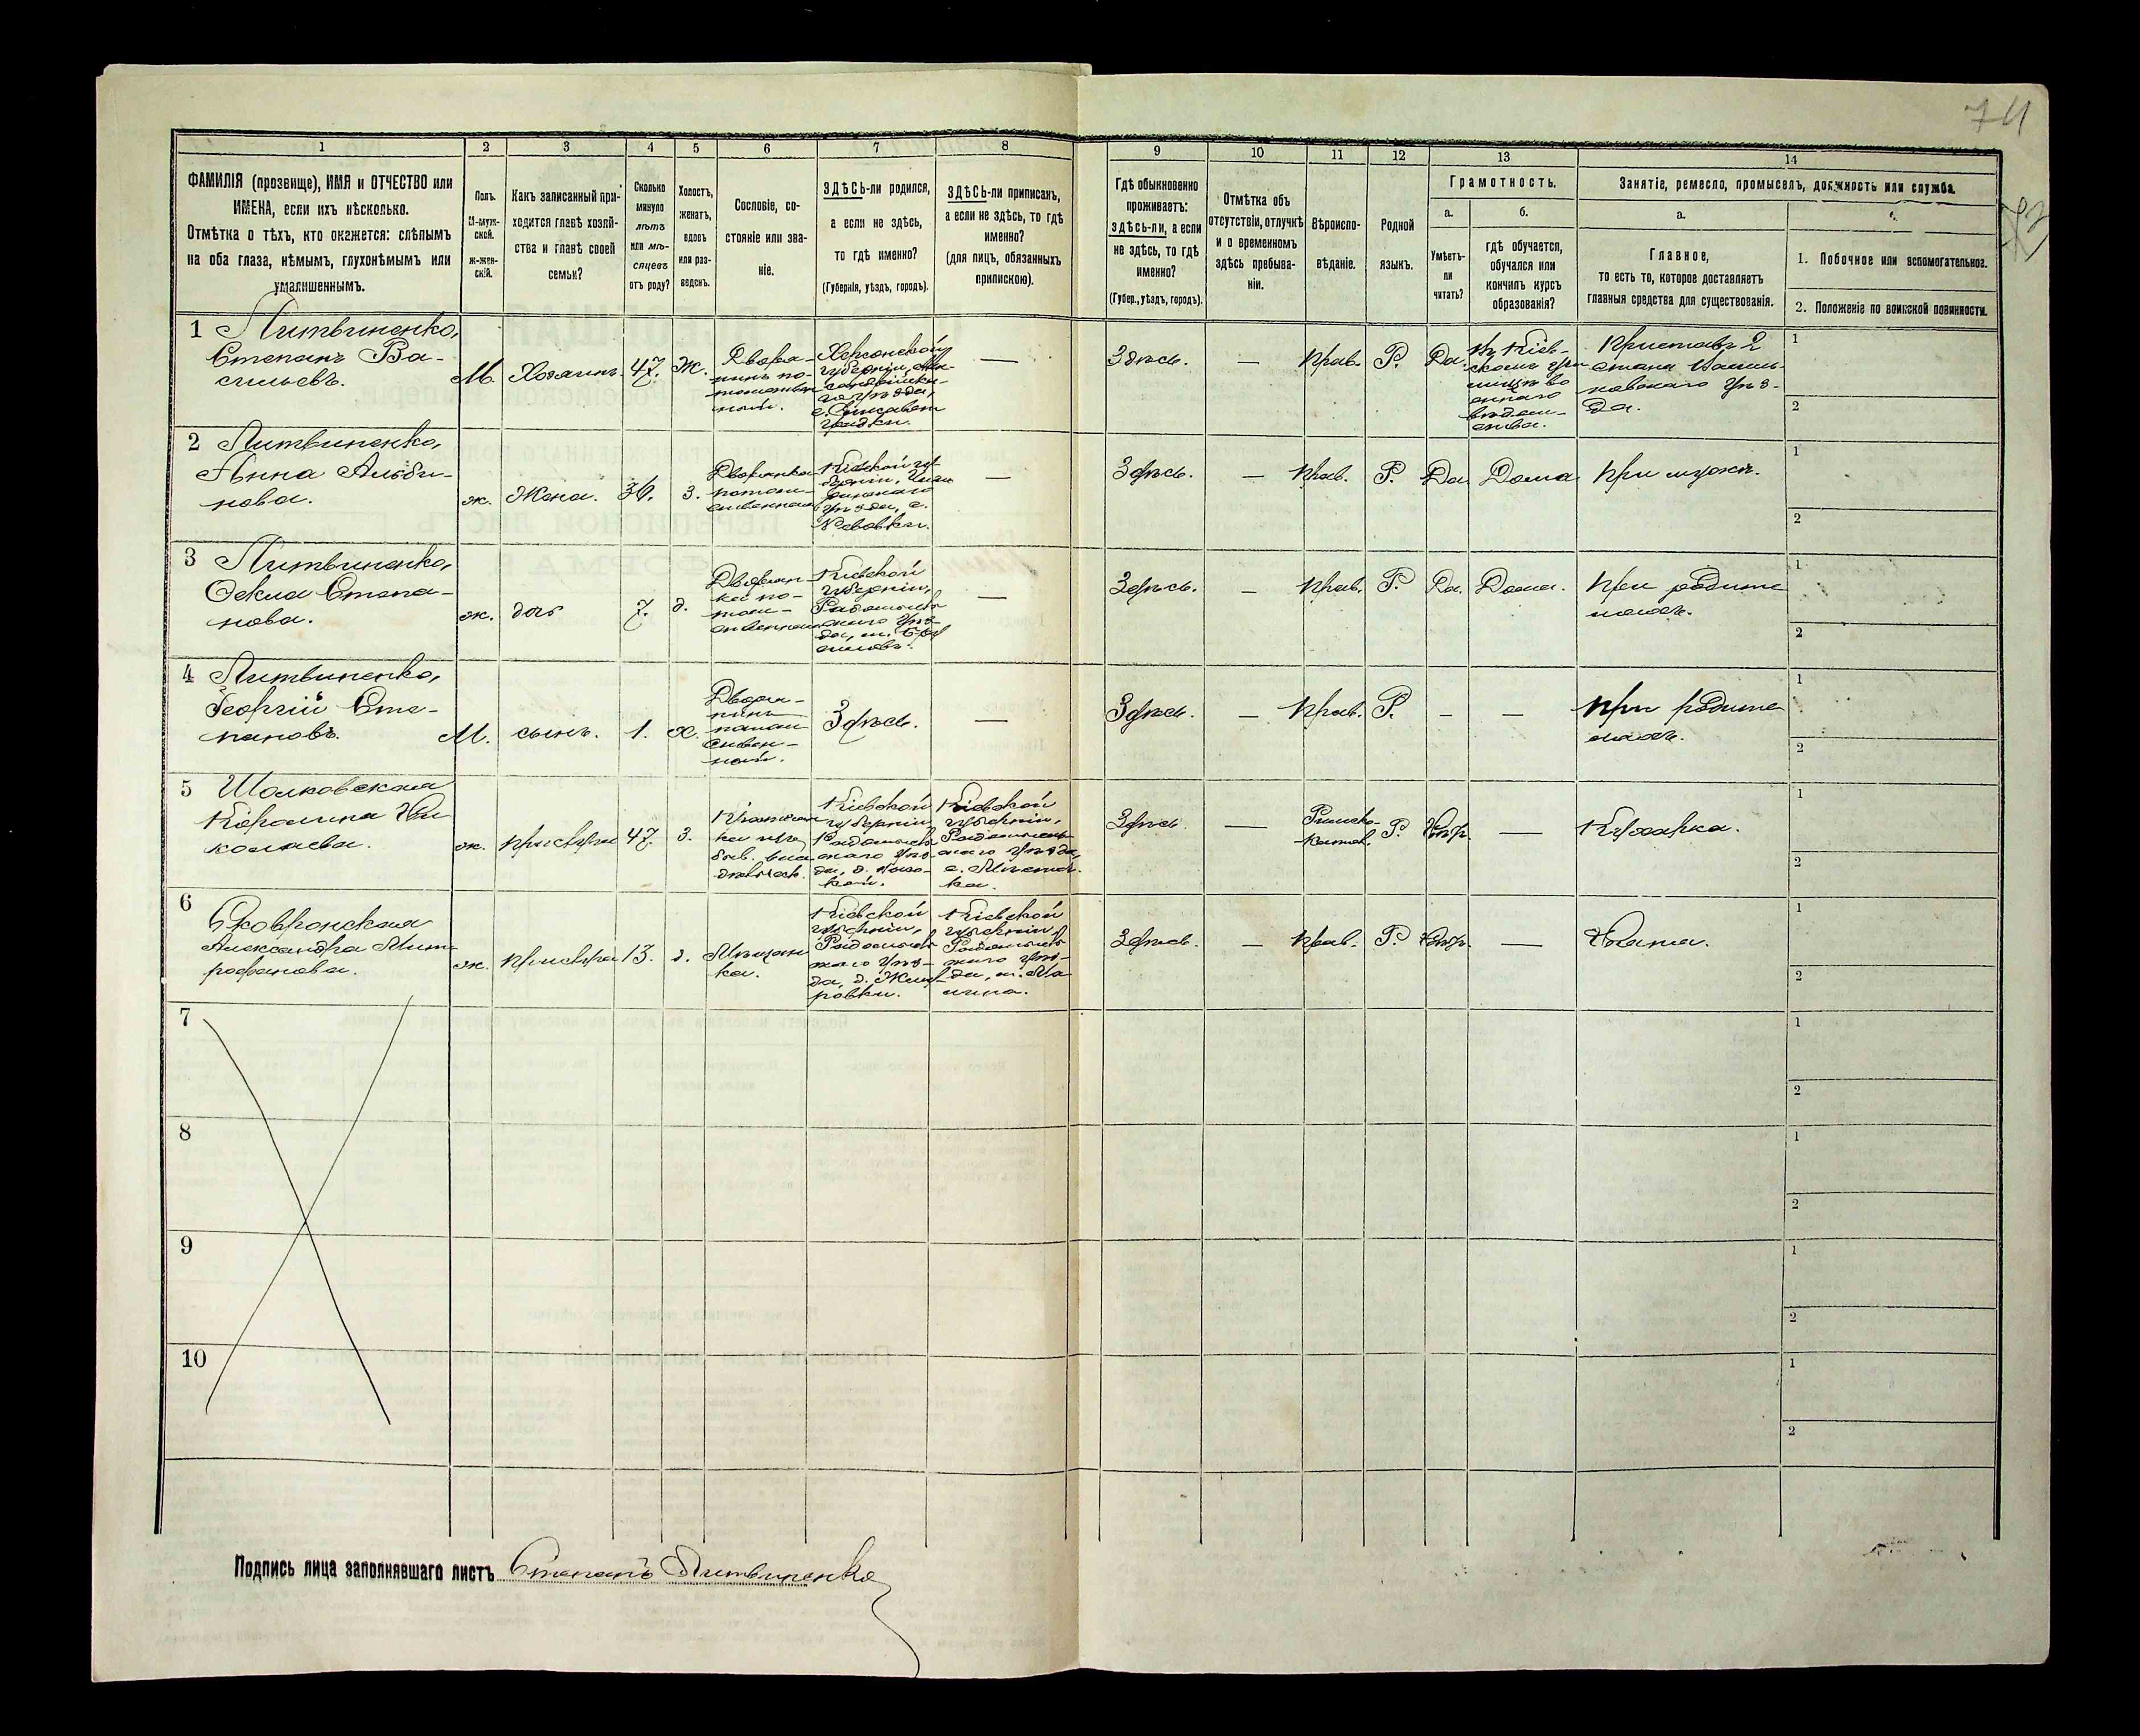 74
73
1 2 3 4 5 6 7 8 9 10 11 12 13 14
ФАМИЛІЯ (прозвище), ИМЯ и ОТЧЕСТВО или
ИМЕНА, если ихъ нѣсколько.
Отмѣтка о тѣхъ, кто окажется: слѣпымъ
на оба глаза, нѣмымъ, глухонѣмымъ или
умалишеннымъ.
Полъ.
М-муж-
ской.
ж-жен-
скій.
Какъ записанный при-
ходится главѣ хозяй-
ства и главѣ своей
семьи?
Сколько
минуло
лѣтъ
или мѣ-
сяцевъ
отъ роду?
Холостъ,
женатъ,
вдовъ
или раз-
веденъ.
Сословіе, со-
стояніе или зва-
ніе.
ЗДѢСЬ-ли родился,
а если не здѣсь,
то гдѣ именно?
(Губернія, уѣздъ, городъ).
ЗДѢСЬ-ли приписанъ,
а если не здѣсь, то гдѣ
именно?
(для лицъ, обязанныхъ
припискою).
Гдѣ обыкновенно
проживаетъ:
здѣсь-ли, а если
не здѣсь, то гдѣ
именно?
(Губер., уѣздъ, городъ).
Отмѣтка объ
отсутствіи, отлучкѣ
и о временномъ
здѣсь пребыва-
ніи.
Вѣроиспо-
вѣданіе.
Родной
языкъ.
Грамотность.
а.
Умѣетъ-
ли
читать?
б.
гдѣ обучается,
обучался или
кончилъ курсъ
образованія?
Занятіе, ремесло, промыселъ, должность или служба.
а.
Главное,
то есть то, которое доставляетъ
главныя средства для существованія.
1. Побочное или вспомогательное.
2. Положеніе по воинской повинности.
1 Литвиненко,
Степанъ Ва-
сильевъ.
М. Хозяинъ. 47. Ж.
Дворя-
нинъ по-
томствен
ный.
Херсонской
губерніи, Але-
ксандрійска-
го уѣзда,
с. Елисавет
градки.
—
Здѣсь. — Прав. Р. Да.
Въ Кіев-
скомъ учи
лищѣ во
еннаго
вѣдом-
ства.
Приставъ 2
стана Василь-
ковскаго уѣз-
да.
1
2
2 Литвиненко,
Анна Альби-
нова.
ж. Жена. 36. З.
Дворянка
потом-
ственная
Кіевской гу-
берніи, Чиги
ринскаго
уѣзда, с.
—
Здѣсь. — Прав. Р. Да. Дома При мужѣ.
1
2
3 Литвиненко,
Ѳекла Степа-
нова.
ж. дочь 7. д.
Дворян-
ка по-
том-
ственная
Кіевской
губерніи,
Радомысль
скаго уѣз-
да, м. Бру
силовъ.
—
Здѣсь. — Прав. Р. Да. Дома. При родите
ляхъ.
1
2
4 Литвиненко,
Георгій Сте-
пановъ.
М. сынъ. 1. Х.
Дворя-
нинъ
потом
ствен-
ный.
Здѣсь. —
Здѣсь. — Прав. Р. — — При родите
ляхъ.
1
2
5 Шолковская
Каролина Ни
колаева.
ж. прислуга 47. З.
Крестьян
ка изъ
быв. вла
дѣльч.
Кіевской
губерніи
Радомысль
скаго уѣз-
Кіевской
губерніи,
Радомысль-
скаго уѣзда,
Здѣсь. — Римско-
Катол. Р. Негр. — Кухарка.
1
2
6 Сковронская
Александра Мит
рофанова.
ж. прислуга 13. д.
Мѣщан
ка.
Кіевской
губерніи,
Радомысль
скаго уѣз-
да, д.
Кіевской
губерніи,
Радомысль
скаго уѣз-
да, м. Ма
лина.
Здѣсь. — Прав. Р. Негр. — Няня.
1
2
7
1
2
8
1
2
9
1
2
10
1
2
Подпись лица заполнявшаго листъ Степанъ Литвиненко